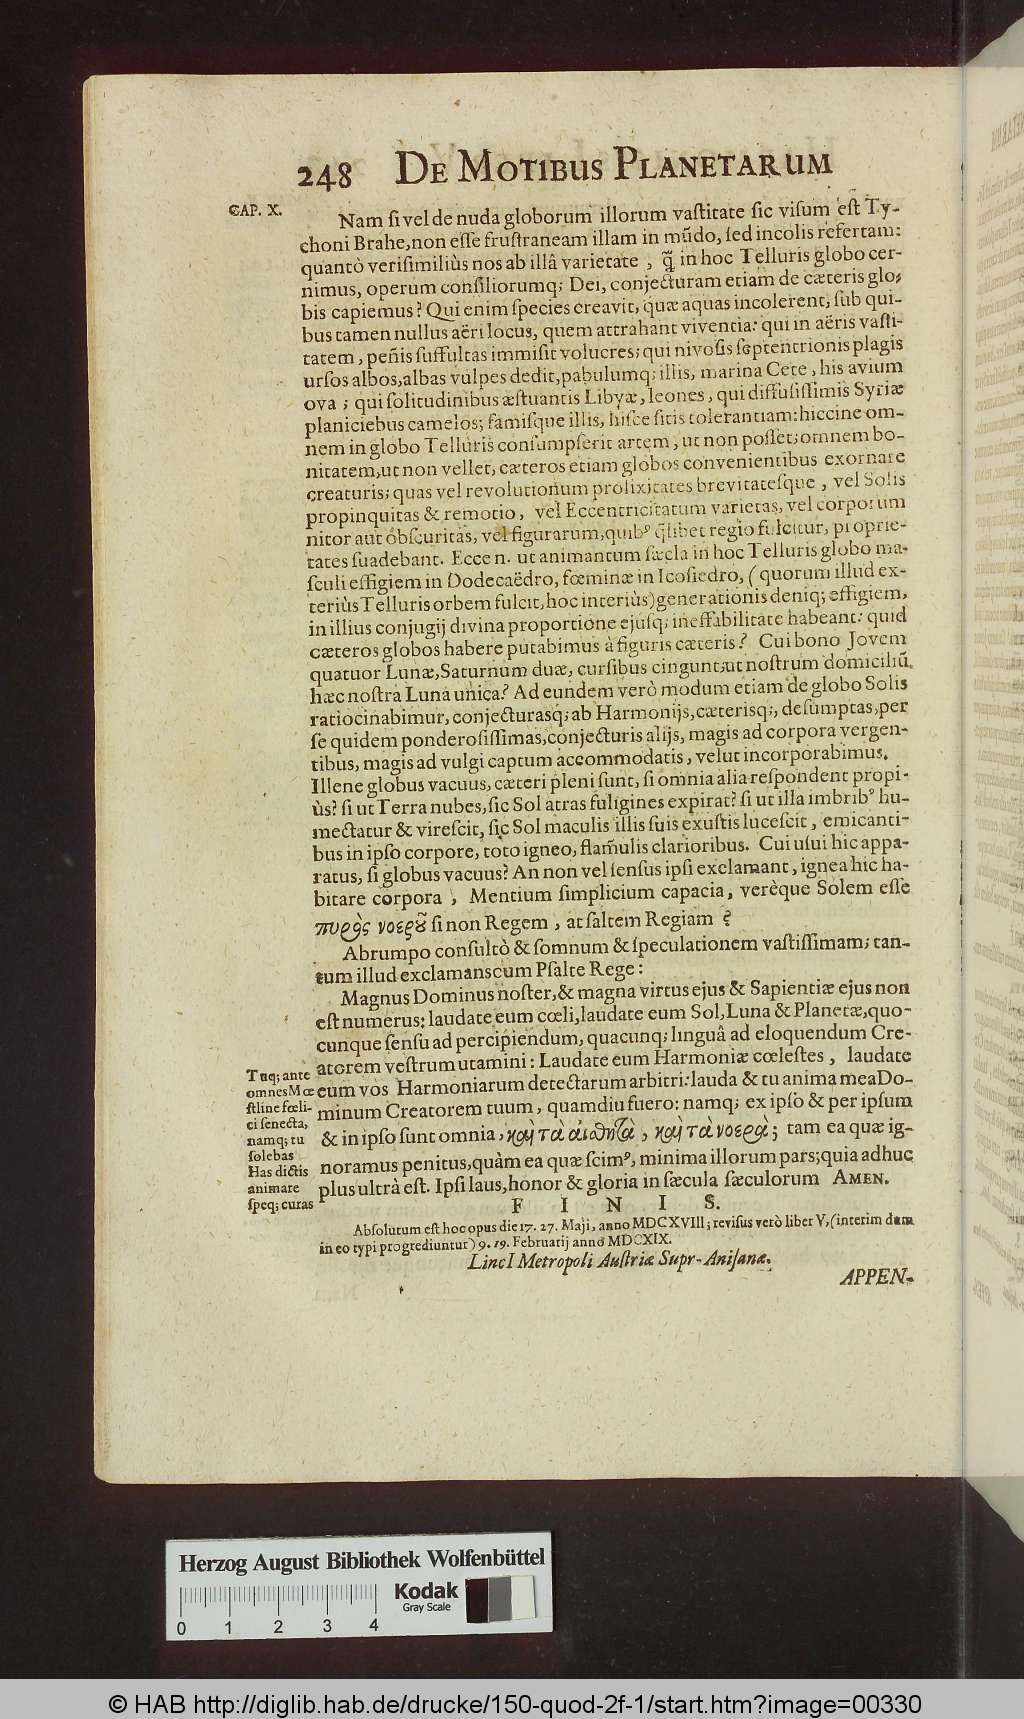 248 DE MOTIBUS PLANETARUM
CAP. X.
Nam ſi vel de nuda globorum illorum vaſtitate ſic viſum eſt Ty-
choni Brahe, non eſſe fruſtraneam illam in mũdo, ſed incolis refertam:
quantò veriſimiliùs nos ab illâ varietate, q̃ in hoc Telluris globo cer-
nimus, operum conſiliorumq; Dei, conjecturam etiam de cæteris glo-
bis capiemus? Qui enim ſpecies creavit, quæ aquas incolerent, ſub qui-
bus tamen nullus aëri locus, quem attrahant viventia: qui in aëris vaſti-
tatem, peñis ſuffultas immiſit volucres; qui nivoſis ſeptentrionis plagis
urſos albos, albas vulpes dedit, pabulumq; illis, marina Cete, his avium
ova; qui ſolitudinibus æſtuantis Libyæ, leones, qui diffuſiſſimis Syriæ
planiciebus camelos; famiſque illis, hiſce ſitis tolerantiam: hiccine om-
nem in globo Telluris conſumpſerit artem, ut non poſſet; omnem bo-
nitatem, ut non vellet, cæteros etiam globos convenientibus exornare
creaturis; quas vel revolutionum prolixitates brevitateſque, vel Solis
propinquitas & remotio, vel Eccentricitatum varietas, vel corporum
nitor aut obſcuritas, vel figurarum, quibꝰ q̃libet regio fulcitur, proprie-
tates ſuadebant. Ecce n. ut animantum ſæcla in hoc Telluris globo ma-
ſculi effigiem in Dodecaëdro, fœminæ in Icoſiedro, (quorum illud ex-
teriùs Telluris orbem fulcit, hoc interiùs) generationis deniq; effigiem,
in illius conjugij divina proportione ejuſq; ineffabilitate habeant: quid
cæteros globos habere putabimus à figuris cæteris? Cui bono Jovem
quatuor Lunæ, Saturnum duæ, curſibus cingunt; ut noſtrum domiciliũ
hæc noſtra Luna unica? Ad eundem verò modum etiam de globo Solis
ratiocinabimur, conjecturasq; ab Harmonijs, cæterisq;, deſumptas, per
ſe quidem ponderoſiſſimas, conjecturis alijs, magis ad corpora vergen-
tibus, magis ad vulgi captum accommodatis, velut incorporabimus.
Illene globus vacuus, cæteri pleni ſunt, ſi omnia alia reſpondent propi-
ùs? ſi ut Terra nubes, ſic Sol atras fuligines expirat? ſi ut illa imbribꝰ hu-
mectatur & vireſcit, ſic Sol maculis illis ſuis exuſtis luceſcit, emicanti-
bus in ipſo corpore, toto igneo, flam̃ulis clarioribus. Cui uſui hic appa-
ratus, ſi globus vacuus? An non vel ſenſus ipſi exclamant, ignea hic ha-
bitare corpora, Mentium ſimplicium capacia, verèque Solem eſſe
πυρὸς νοεροῦ ſi non Regem, at ſaltem Regiam?
Abrumpo conſultò & ſomnum & ſpeculationem vaſtiſſimam; tan-
tum illud exclamans cum Pſalte Rege:
Magnus Dominus noſter, & magna virtus ejus & Sapientiæ ejus non
eſt numerus: laudate eum cœli, laudate eum Sol, Luna & Planetæ, quo-
cunque ſenſu ad percipiendum, quacunq; linguâ ad eloquendum Cre-
atorem veſtrum utamini: Laudate eum Harmoniæ cœleſtes, laudate
eum vos Harmoniarum detectarum arbitri: lauda & tu anima mea Do-
minum Creatorem tuum, quamdiu fuero: namq; ex ipſo & per ipſum
& in ipſo ſunt omnia, καὶ τὰ αἰσθητὰ, καὶ τὰ νοερὰ; tam ea quæ ig-
noramus penitus, quàm ea quæ ſcimꝰ, minima illorum pars; quia adhuc
plus ultrà eſt. Ipſi laus, honor & gloria in ſæcula ſæculorum AMEN.
Tuq; ante
omnes Mœ
ſtline fœli-
ci ſenecta,
namq; tu
ſolebas
Has dictis
animare
ſpeq; curas
FINIS.
Abſolutum eſt hoc opus die 17. 27. Maji, anno MDCXVIII; reviſus verò liber V, (interim dum
in eo typi progrediuntur) 9. 19. Februarij anno MDCXIX.
LincI Metropoli Auſtriæ Supr-Aniſanæ.
APPEN-
Herzog August Bibliothek Wolfenbüttel
Kodak
Gray Scale
0 1 2 3 4
© HAB http://diglib.hab.de/drucke/150-quod-2f-1/start.htm?image=00330